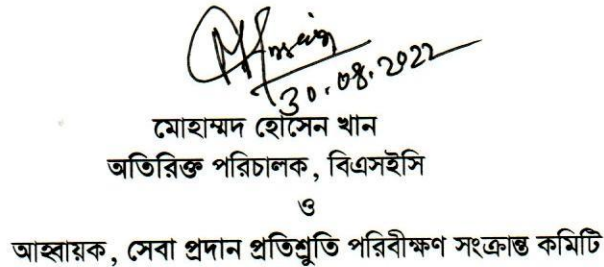 30.08.2022
মোহাম্মদ হোসেন খান
অতিরিক্ত পরিচালক, বিএসইসি
ও
আহ্বায়ক, সেবা প্রদান প্রতিশ্রুতি পরিবীক্ষণ সংক্রান্ত কমিটি